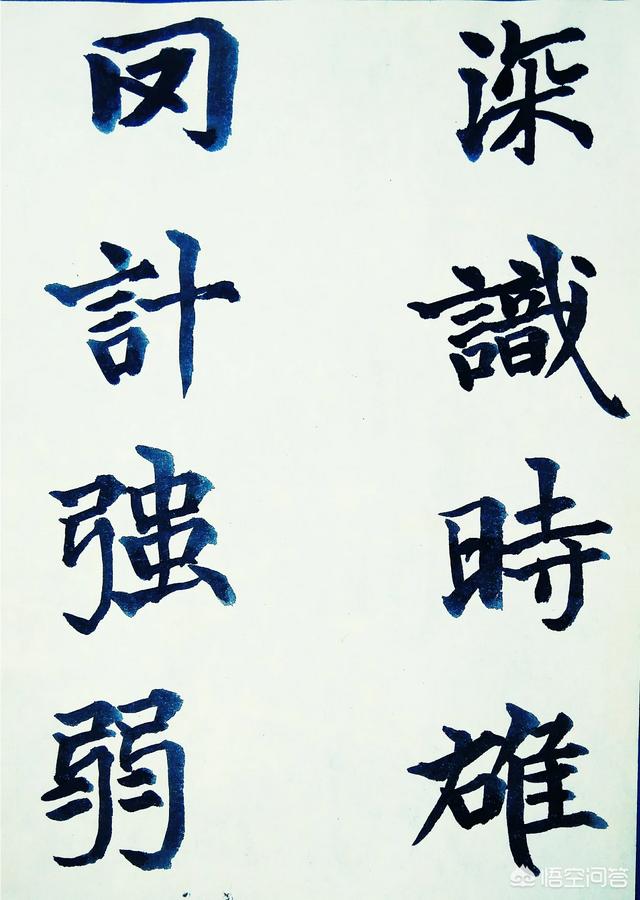 深識時雄
計強弱
悟空问答